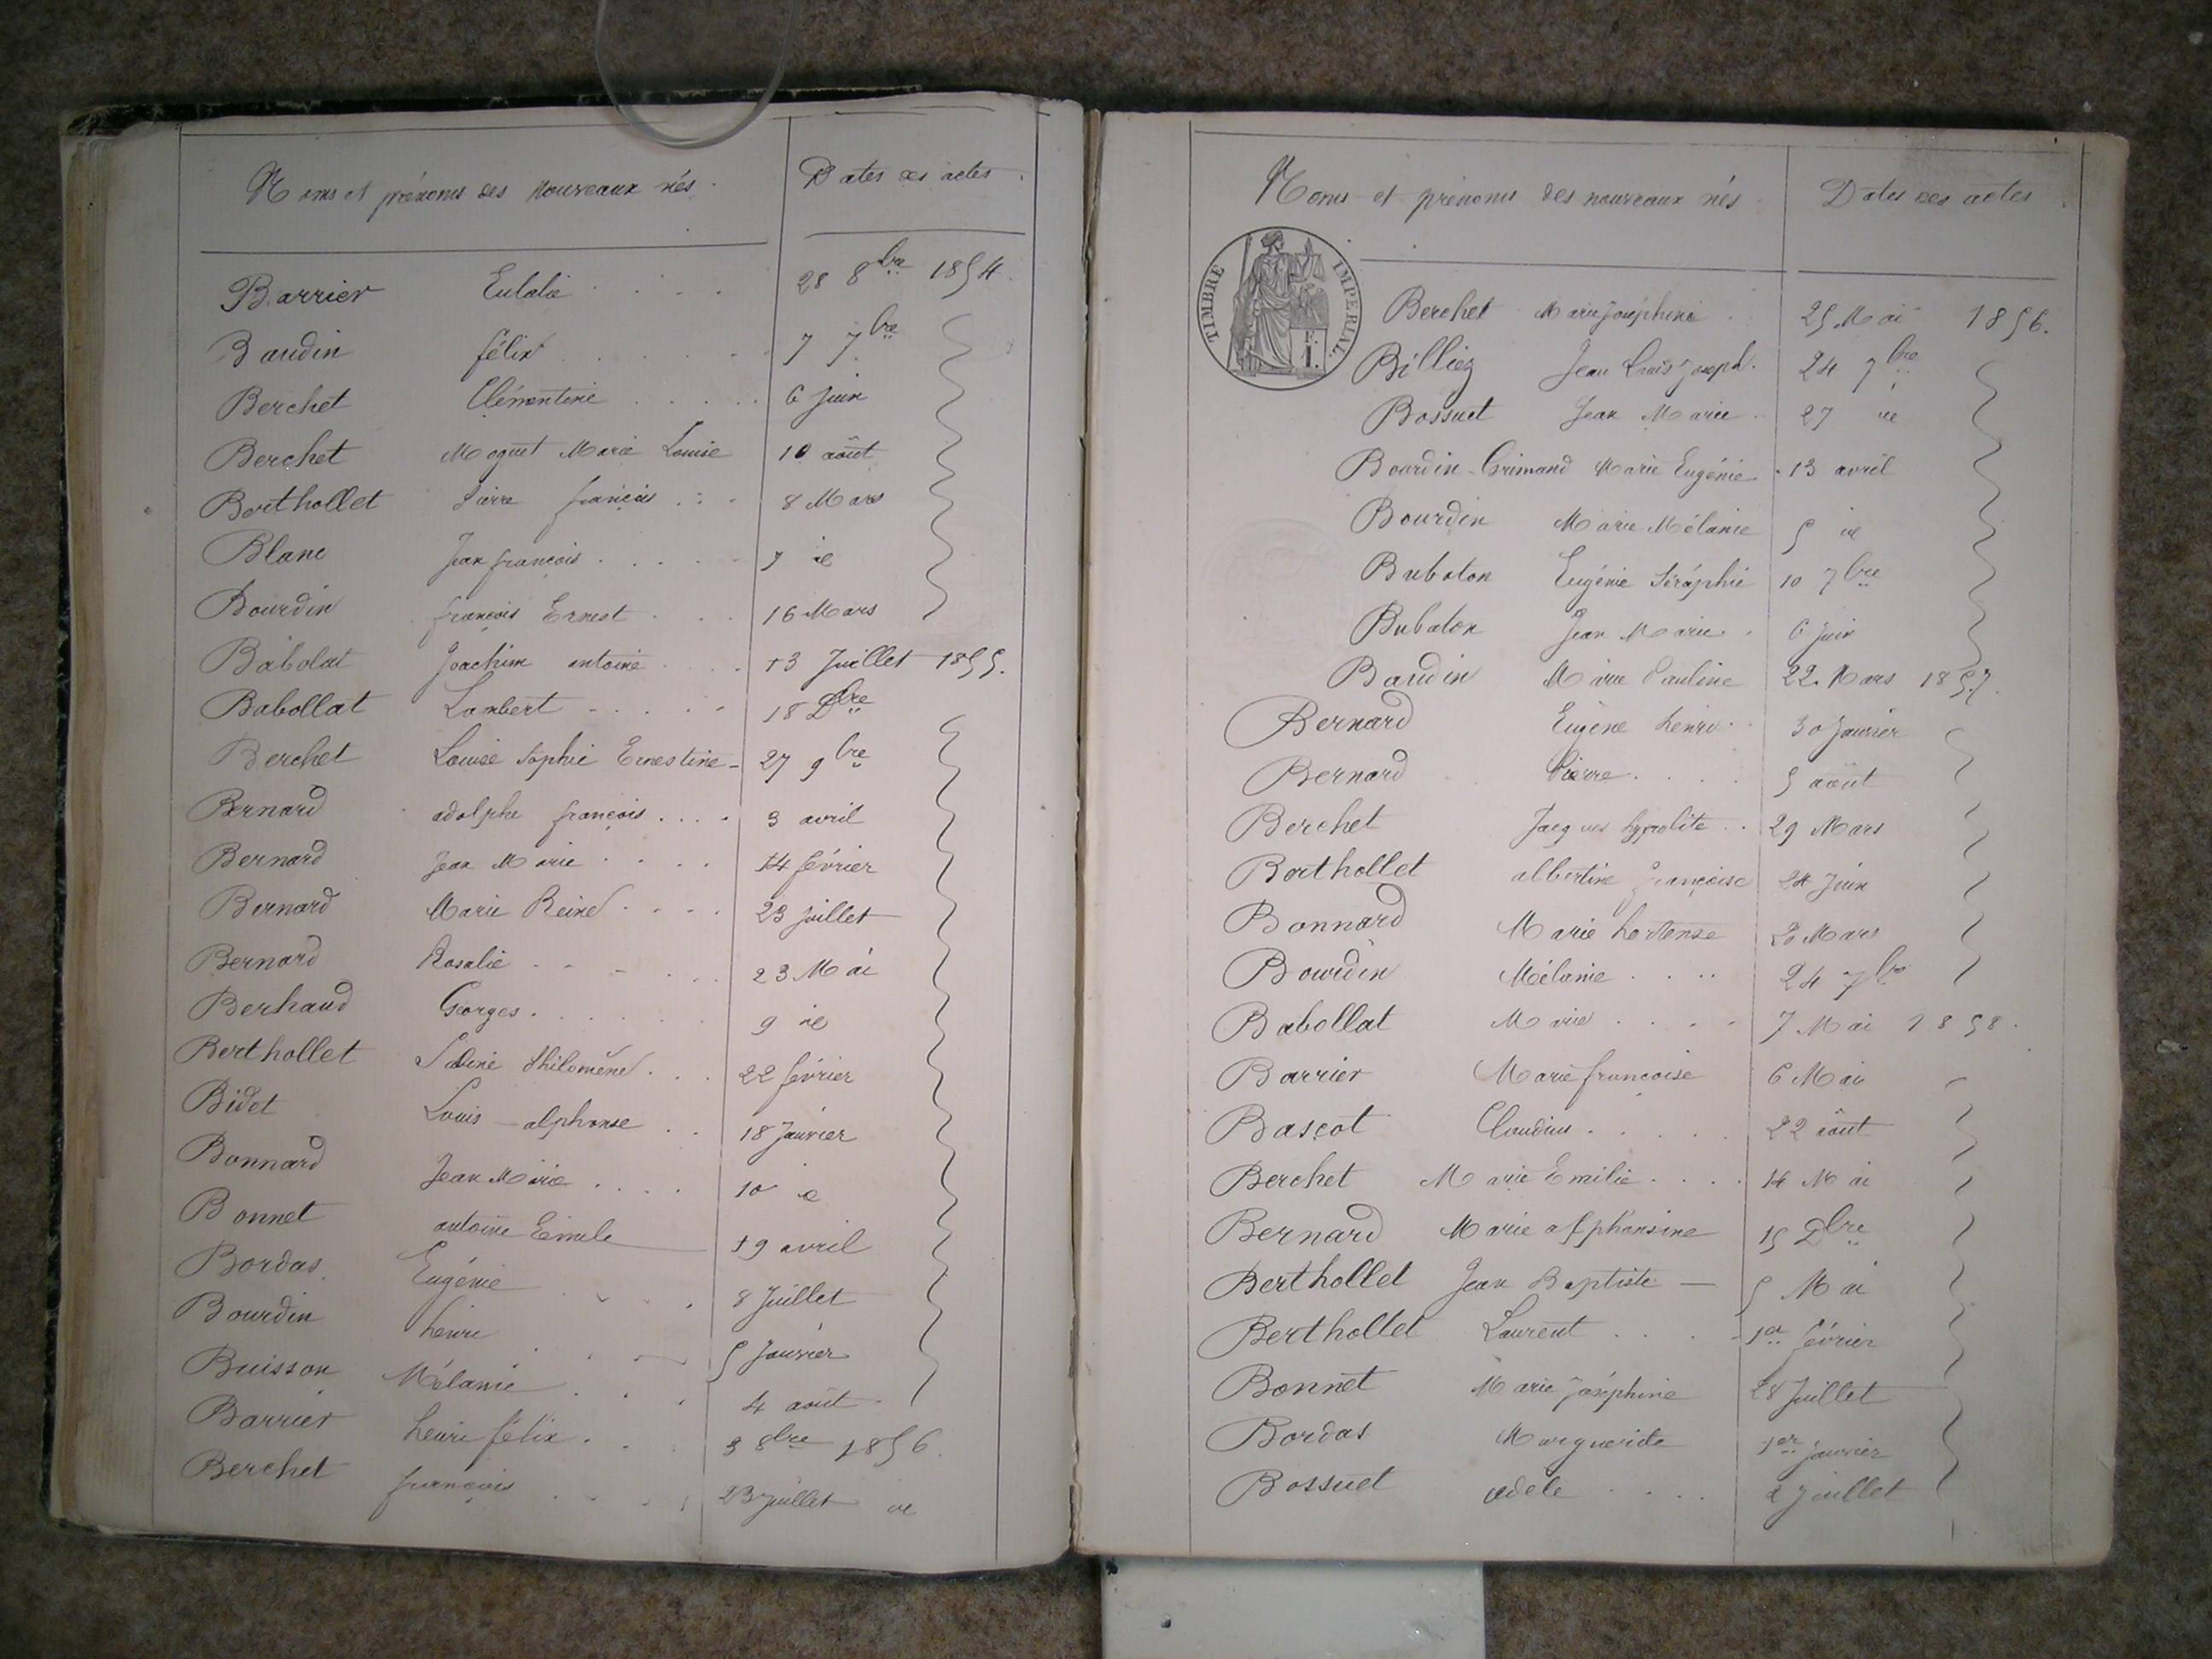 Noms et prénoms des nouveaux nés. Dates des actes.
Barrier Eulalie 28 8bre 1854.
Baudin félix 7 7bre
Berchet Clémentine 6 Juin
Berchet Moguet Marie Louise 10 août
Berthollet Pierre françois 8 Mars
Blanc Jean françois 7 id
Bourdin françois Ernest 16 Mars
Babolat Joachim antoine 13 Juillet 1855.
Babollat Lambert 18 Dbre
Berchet Louise Sophie Ernestine 27 9bre
Bernard adolphe françois 3 avril
Bernard Jean Marie 14 février
Bernard Marie Reine 23 Juillet
Bernard Rosalie 23 Mai
Berhaud Georges 9 id
Berthollet Philomène 22 février
Bidot Louis alphonse 18 Janvier
Bonnard Jean Marie 10 id
Bonnet antoine Emile 19 avril
Bordas Eugénie 8 Juillet
Bourdin henri 5 Janvier
Buisson Mélanie 4 août
Barrier henri félix 3 8bre 1856.
Berchet françois 23 Juillet id
Noms et prénoms des nouveaux nés Dates des actes
TIMBRE IMPÉRIAL.
F.
1.
Berchet Marie Joséphine 25 Mai 1856.
Billiez Jean Louis Joseph 24 7bre
Bossuet Jean Marie 27 id
Bourdin-Grimand Marie Eugénie 13 avril
Bourdin Marie Mélanie 5 id
Buboton Eugénie Séraphie 10 7bre
Bubaton Jean Marie 6 Juin
Baudin Marie Pauline 22 Mars 1857.
Bernard Eugène henri 30 Janvier
Bernard Pierre 5 août
Berchet Jacques hypolite 29 Mars
Berthollet albertine françoise 24 Juin
Bonnard Marie hortense 20 Mars
Bourdin Mélanie 24 7bre
Babollat Marie 7 Mai 1858.
Barrier Marie françoise 6 Mai
Bascot Claudius 22 août
Berchet Marie Emilie 14 Mai
Bernard Marie alphonsine 15 Dbre
Berthollet Jean Baptiste 5 Mai
Berthollet Laurent 1er février
Bonnet Marie Joséphine 28 Juillet
Bordas Marguerite 1er Janvier
Bossuet adèle 2 Juillet